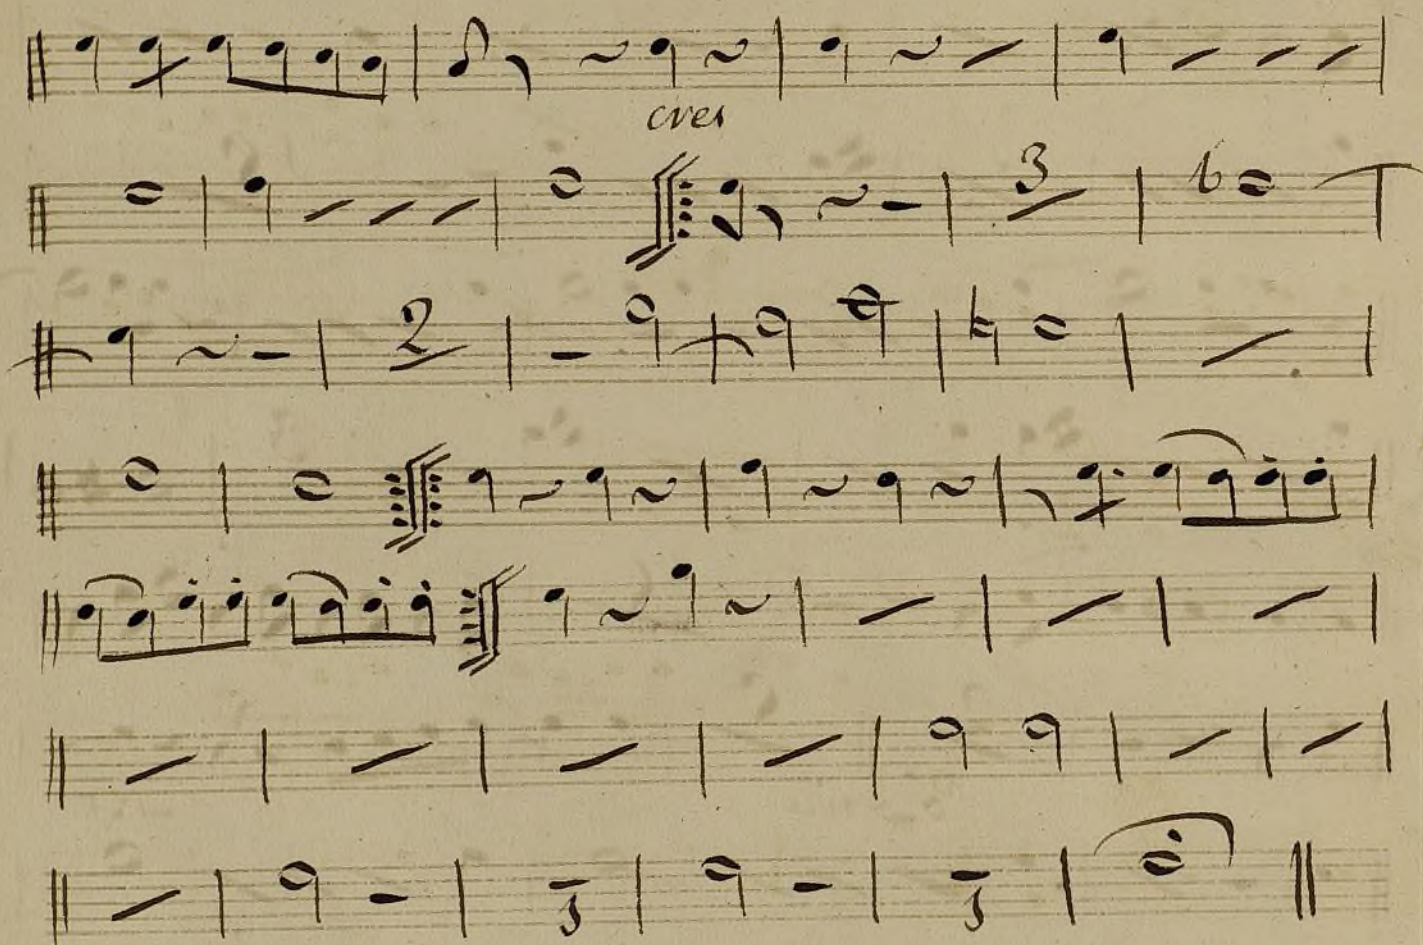 cres
3
2